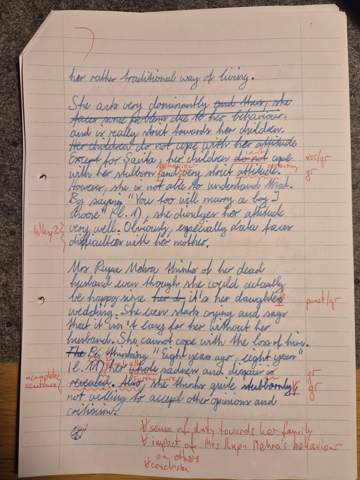 her rather traditional way of living.
She acts very dominantly and thus, she
faces some problems due to her behaviour.
and is really strict towards her children.
Her children do not cope with her attitude
Except for Savita, her children do not cope
with her stubborn and very strict attitude.
However, she is not able to understand that.
By saying "You too will marry a boy I
choose" (l. 1), she the attitude
very well. Obviously, especially Lata faces
difficulties with her mother.
Why?
Mrs Rupa Mehra thinks of her dead
husband even though she could actually
be happy since it is her daughter
wedding. She even starts crying and says
that it isn't easy for her without her
husband. She cannot cope with the loss of him.
The By thinking "Eight years ago, eight years"
(l. ) her whole sadness and despair is
revealed. Also she thinks quite stubbornly
not willing to accept other opinions and
criticism.
gr
gr
gr
incomplete
sentence
sense of duty towards her family
impact of Mrs Rupa Mehra's behaviour
on others
conclusion